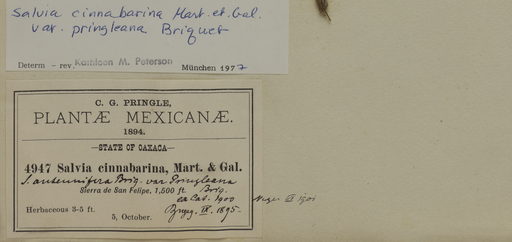 Salvia cinnabarina Mart. et. Gal.
var. pringleana Briquet
Determ - rev. Kathleen M. Peterson München 1977
C. G. PRINGLE,
PLANTÆ MEXICANÆ.
1894.
—STATE OF OAXACA—
4947 Salvia cinnabarina, Mart. & Gal.
S. antennifera Briq. var. Pringleana
Sierra de San Felipe, 1,500 ft. Briq.
ex Cat. 1900
Herbaceous 3-5 ft.
5, October. IX. 1895.